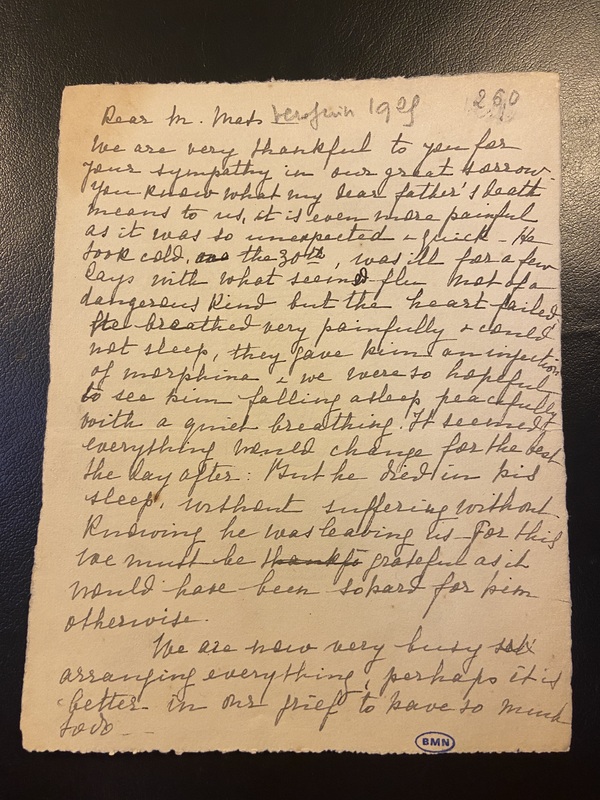 Dear M. Mas 1925 260
We are very thankful to you for
your sympathy in our great sorrow.
You know what my dear father's death
means to us, it is even more painful
as it was so unexpected & quick - He
took cold, the 30th, was ill for a few
days with what seemed flu not of a
dangerous kind but the heart failed
He breathed very painfully & could
not sleep, they gave him an injection
of morphine & we were so hopeful
to see him falling asleep peacefully
with a quiet breathing. It seemed
everything would change for the best
the day after: But he died in his
sleep, without suffering without
knowing he was leaving us - For this
we must be thankfu grateful as it
would have been so hard for him
otherwise.
We are now very busy
arranging everything, perhaps it is
better in our grief to have so much
to do - -
BMN